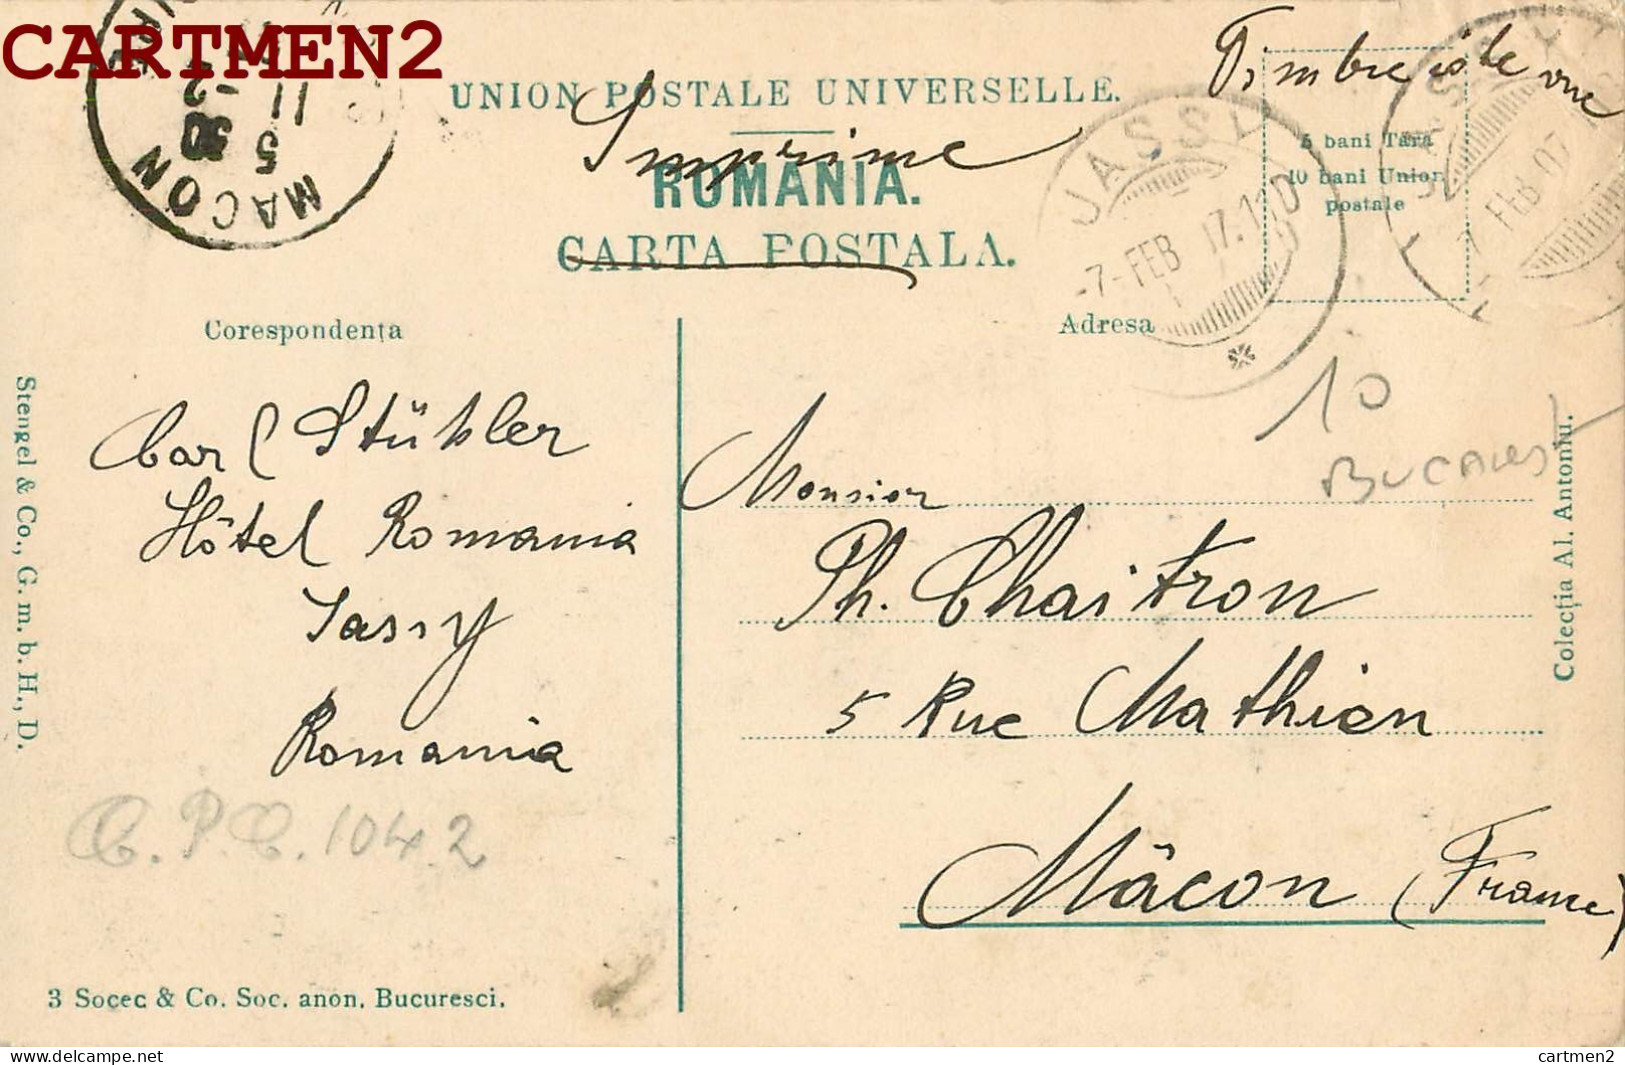 CARTMEN2
MACON
5
11
UNION POSTALE UNIVERSELLE.
Imprime
ROMANIA.
CARTA POSTALA.
JASSI
7-FEB
Timbre côté vue
5 bani Tara
10 bani Union
postale
7 FEB 07
Corespondența
Adresa
10
Bucarest
Carl Stühler
Hôtel Romania
Jassy
Romania
C.P.C. 1042
Monsieur
Ph. Chaitron
5 Rue Mathieu
Mâcon (France)
Stengel & Co., G. m. b. H., D.
Colecția Al. Antoniu.
3 Socec & Co. Soc. anon. Bucuresci.
delcampe.net
cartmen2